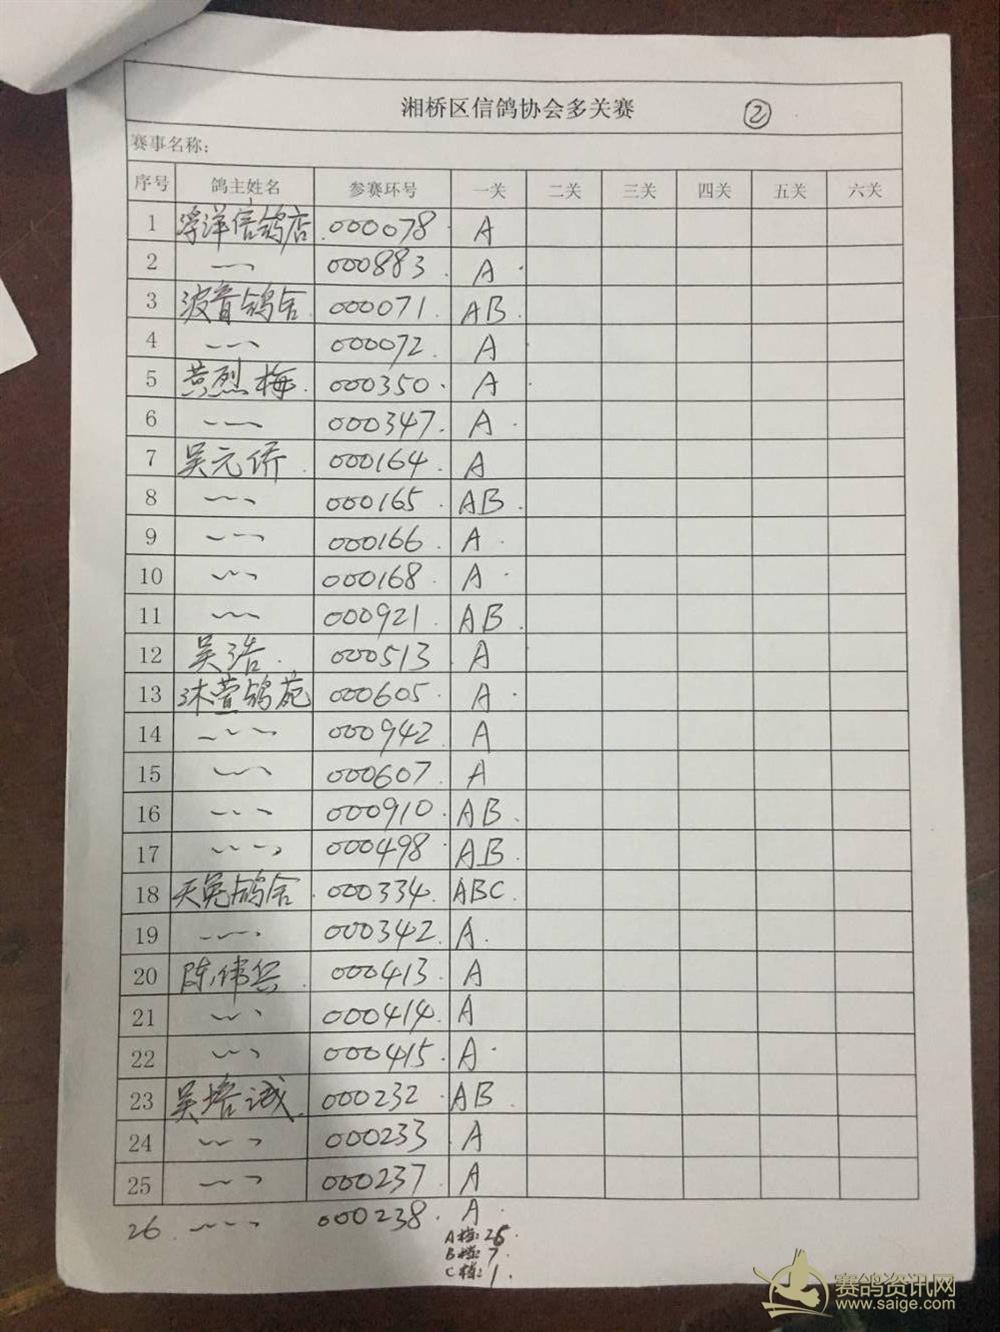 湘桥区信鸽协会多关赛 ②
赛事名称:
序号 鸽主姓名 参赛环号 一关 二关 三关 四关 五关 六关
1 浮洋信鸽店. 000078. A
2 〃 000883. A.
3 波音鸽舍. 000071. AB.
4 〃 000072. A.
5 黄烈梅. 000350. A.
6 〃 000347. A.
7 吴元侨. 000164. A
8 〃 000165. AB.
9 〃 000166. A.
10 〃 000168. A.
11 〃 000921. AB.
12 吴浩. 000513 A
13 沐萱鸽苑 000605. A.
14 〃 000942. A
15 〃 000607. A
16 〃 000910. AB.
17 〃 000498. AB.
18 天宽鸽舍. 000334. ABC.
19 〃 000342. A.
20 陈伟兵. 000413. A
21 〃 000414. A
22 〃 000415. A.
23 吴培诚. 000232. AB.
24 〃 000233. A
25 〃 000237. A
26. 〃 000238. A.
A档: 26
B档: 7.
C档: 1.
赛鸽资讯网
www.saige.com